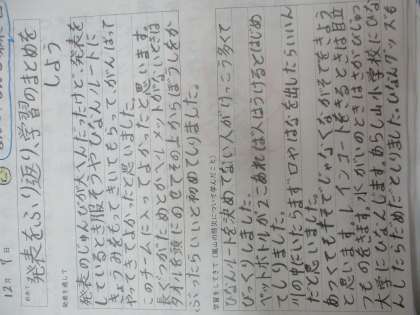 12月9日
めあて
発表をふり返り、学習のまとめを
しよう
発表を通して
発表のじゅんびが大へんだったけど、発表を
しているとき服そうやひなんルートに
きょうみをもってきいてもらってがんばって
やってきてよかったと思いました。
このチームに入ってよかったと思います。
長くつがだめとかヘルメットがないときは
タオルを頭にのせてその上からぼうしをか
ぶったらいいと初めてしりました。
学習をしてきて(嵐山の防災について学んだこと)
ひなんルートを決めてない人がけっこう多くて
びっくりしました。
ペットボトルが2こあれば人はうけるとはじめ
てしりました。
川の中にいたらまず口やはなを出したらいいん
だと思いました。
あつくても半そでじゃなくながそでをきよう
と思います。レインコートをきるときは目立
つものをきます。水がいのときはさかびんを
大学にひなんします。あらし山小学校にひな
んしたらだめだとしりました。ひなんグッズも